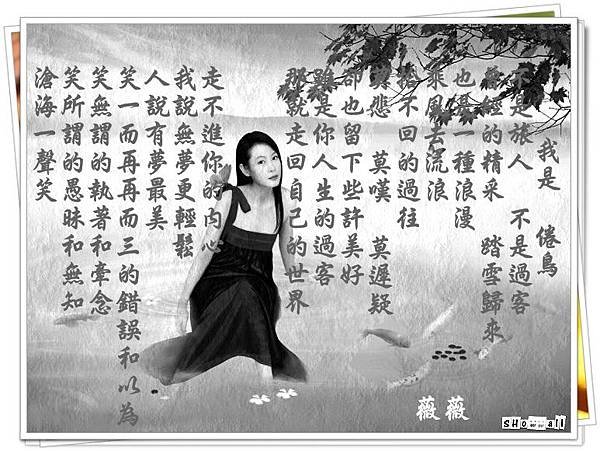 我是 倦鳥
不是旅人 不是過客
曾經的精采 踏雪歸來
也是一種浪漫
乘風去流浪
不回的過往
莫悲 莫嘆 莫遲疑
卻也留下些許美好
雖是你人生的過客
那就走回自己的世界
走不進你的內心
我說無夢更輕鬆
人說有夢最美
笑一而再再而三的錯誤和以為
笑無謂的執著和牽念
笑所謂的愚昧和無知
滄海一聲笑
薇薇